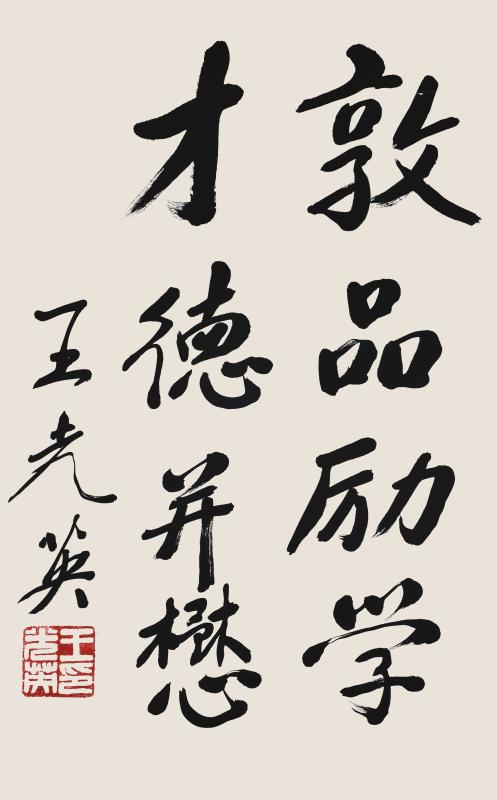 敦品励学
才德并懋
王光英
王光英印